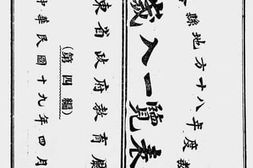 縣地方十八年度
歲入一覽表
東省政府教育廳
(第四編)
中華民國十九年四月